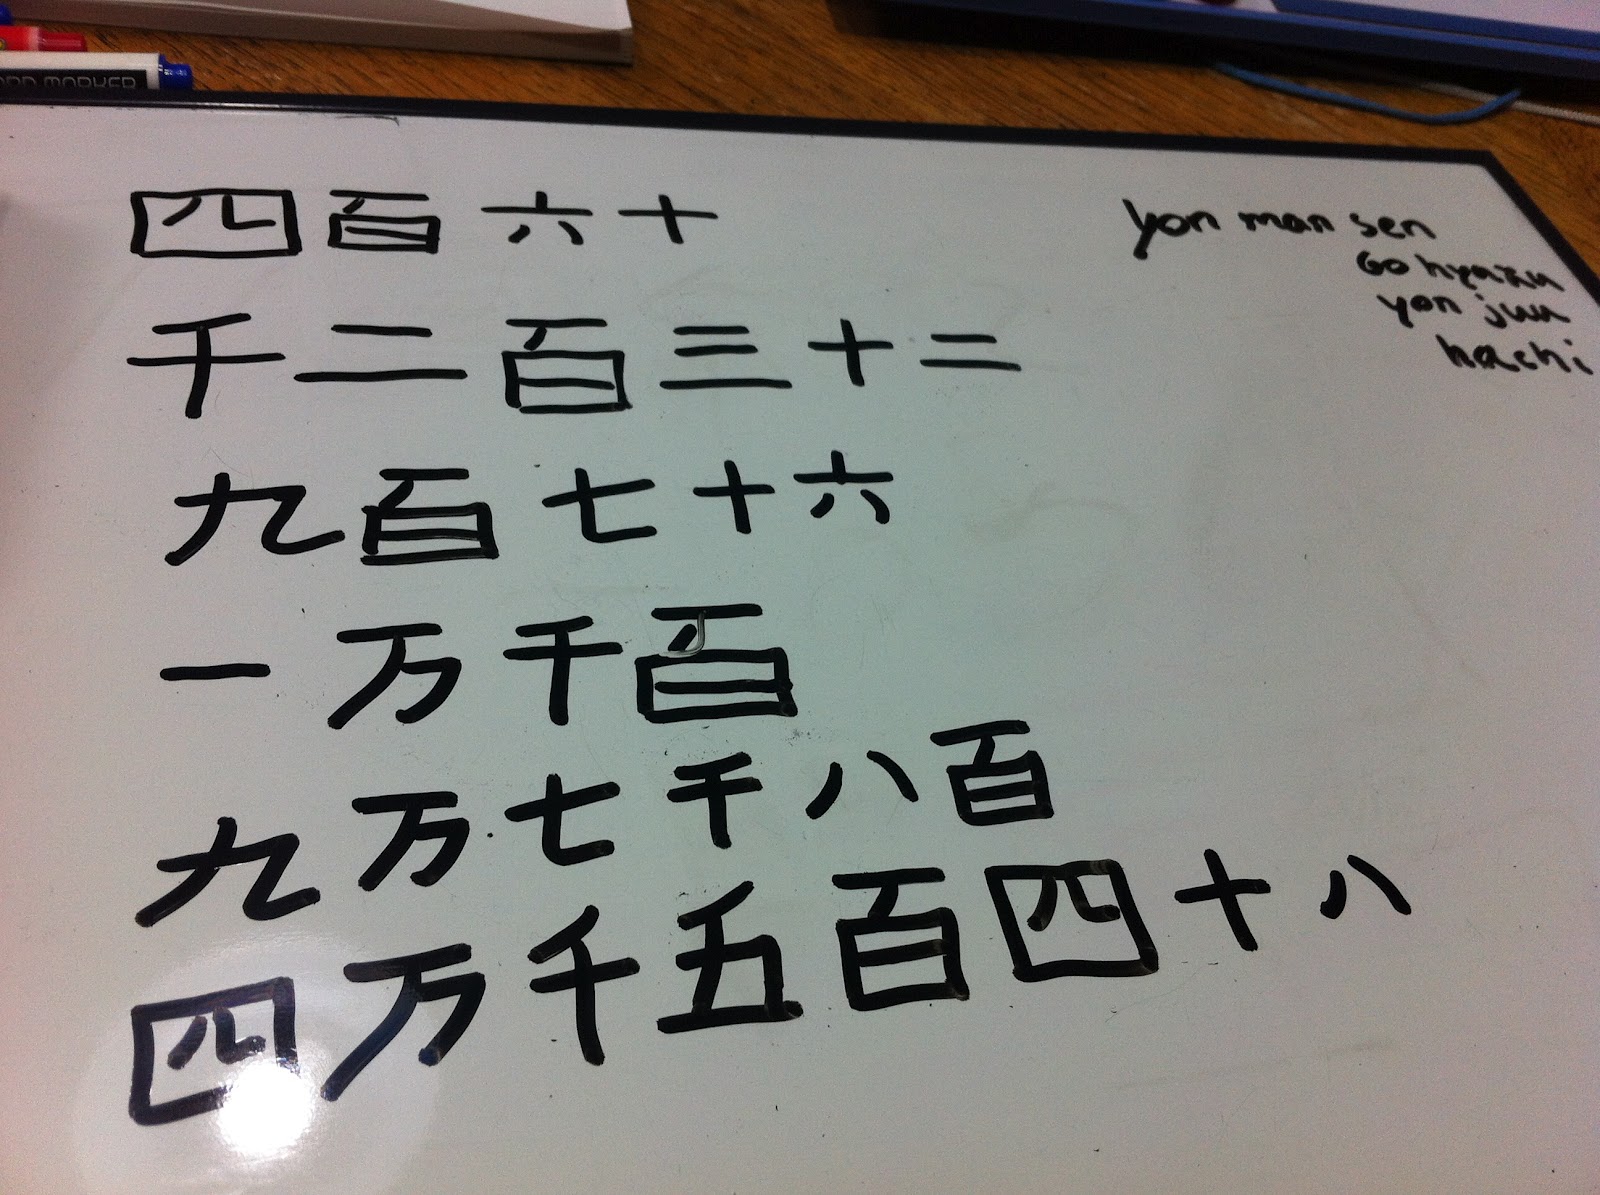 MARKER
四百六十
千二百三十二
九百七十六
一万千百
九万七千八百
四万千五百四十八
yon man sen
Gohyaku
yon juu
hachi